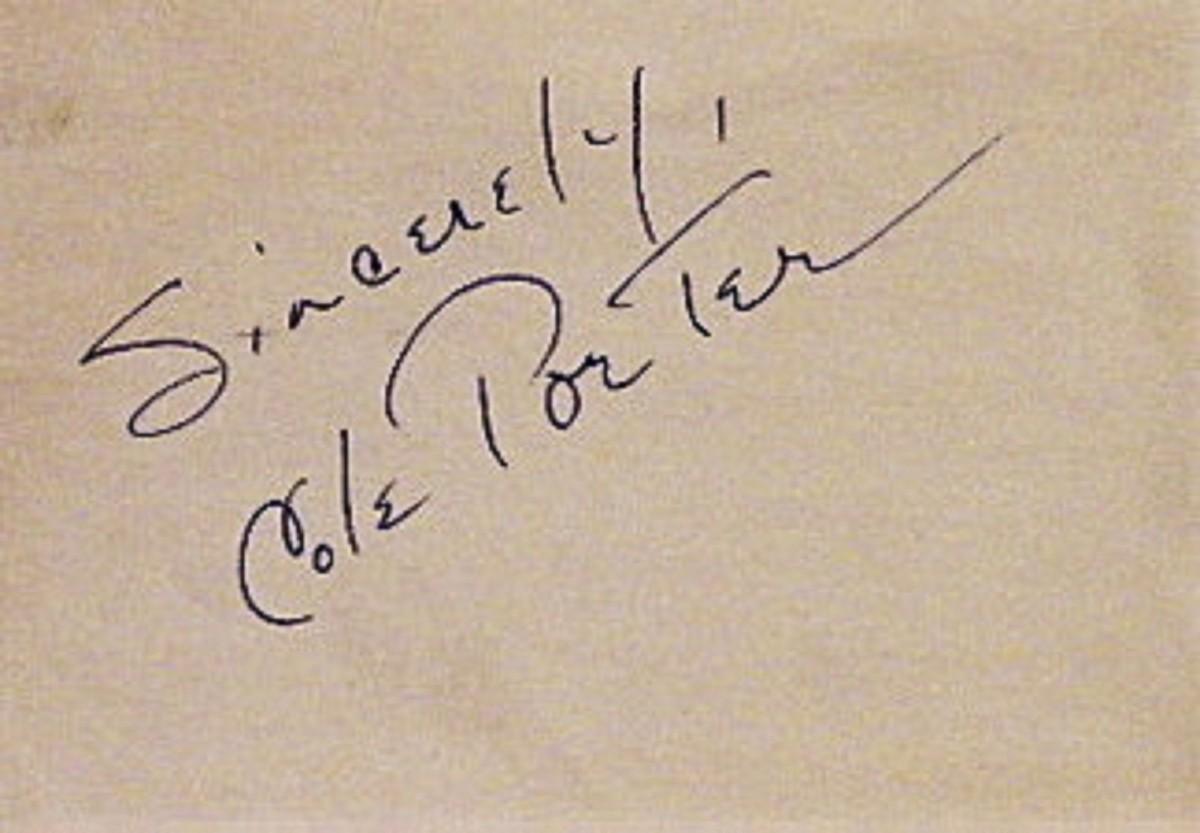 Sincerely,
Cole Porter